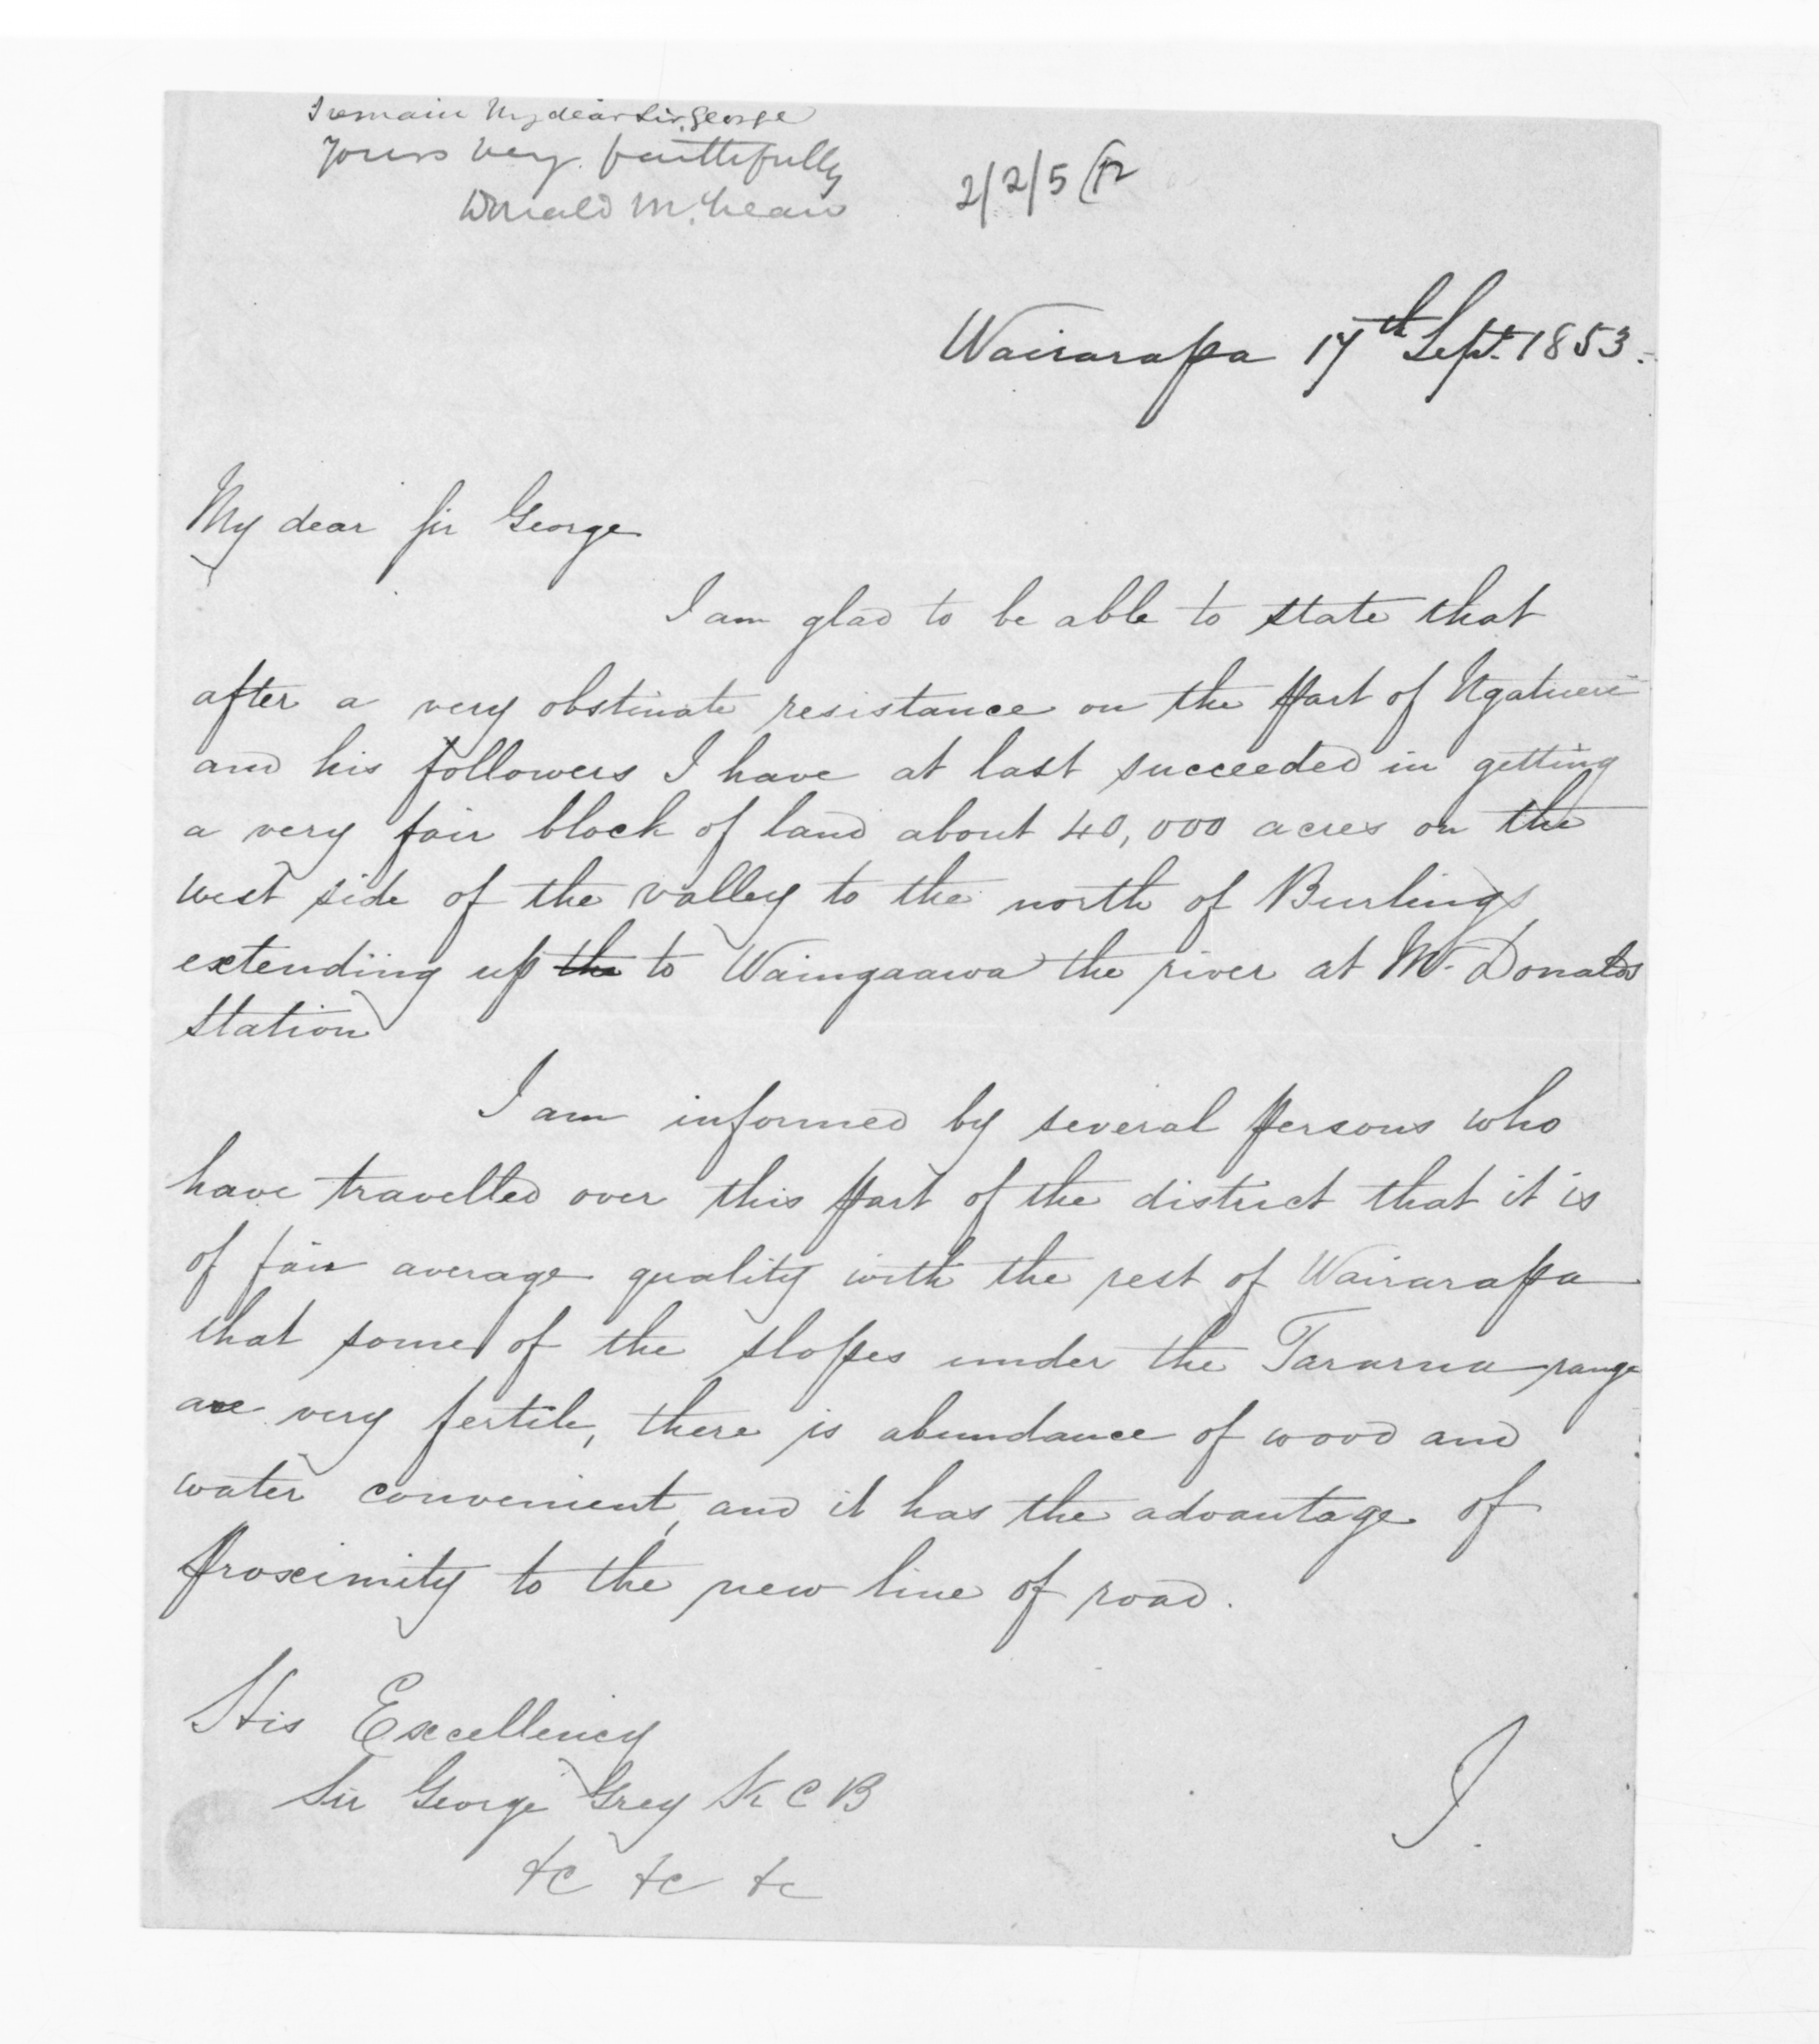 I remain My dear Sir George
Yours very faithfully
Donald McLean
2/2/5
Wairarapa 17th Sept. 1853.
My dear Sir George
I am glad to be able to state that
after a very obstinate resistance on the part of Ngatuere
and his followers I have at last succeeded in getting
a very fair block of land about 40,000 acres on the
west side of the valley to the north of Burlings
extending up the to Waingaawa the river at McDonalds
station
I am informed by several persons who
have travelled over this part of the district that it is
of fair average quality with the rest of Wairarapa
that some of the slopes under the Tararua range
are very fertile, there is abundance of wood and
water convenient, and it has the advantage of
proximity to the new line of road.
His Excellency
Sir George Grey K C B
&c &c &c
I.